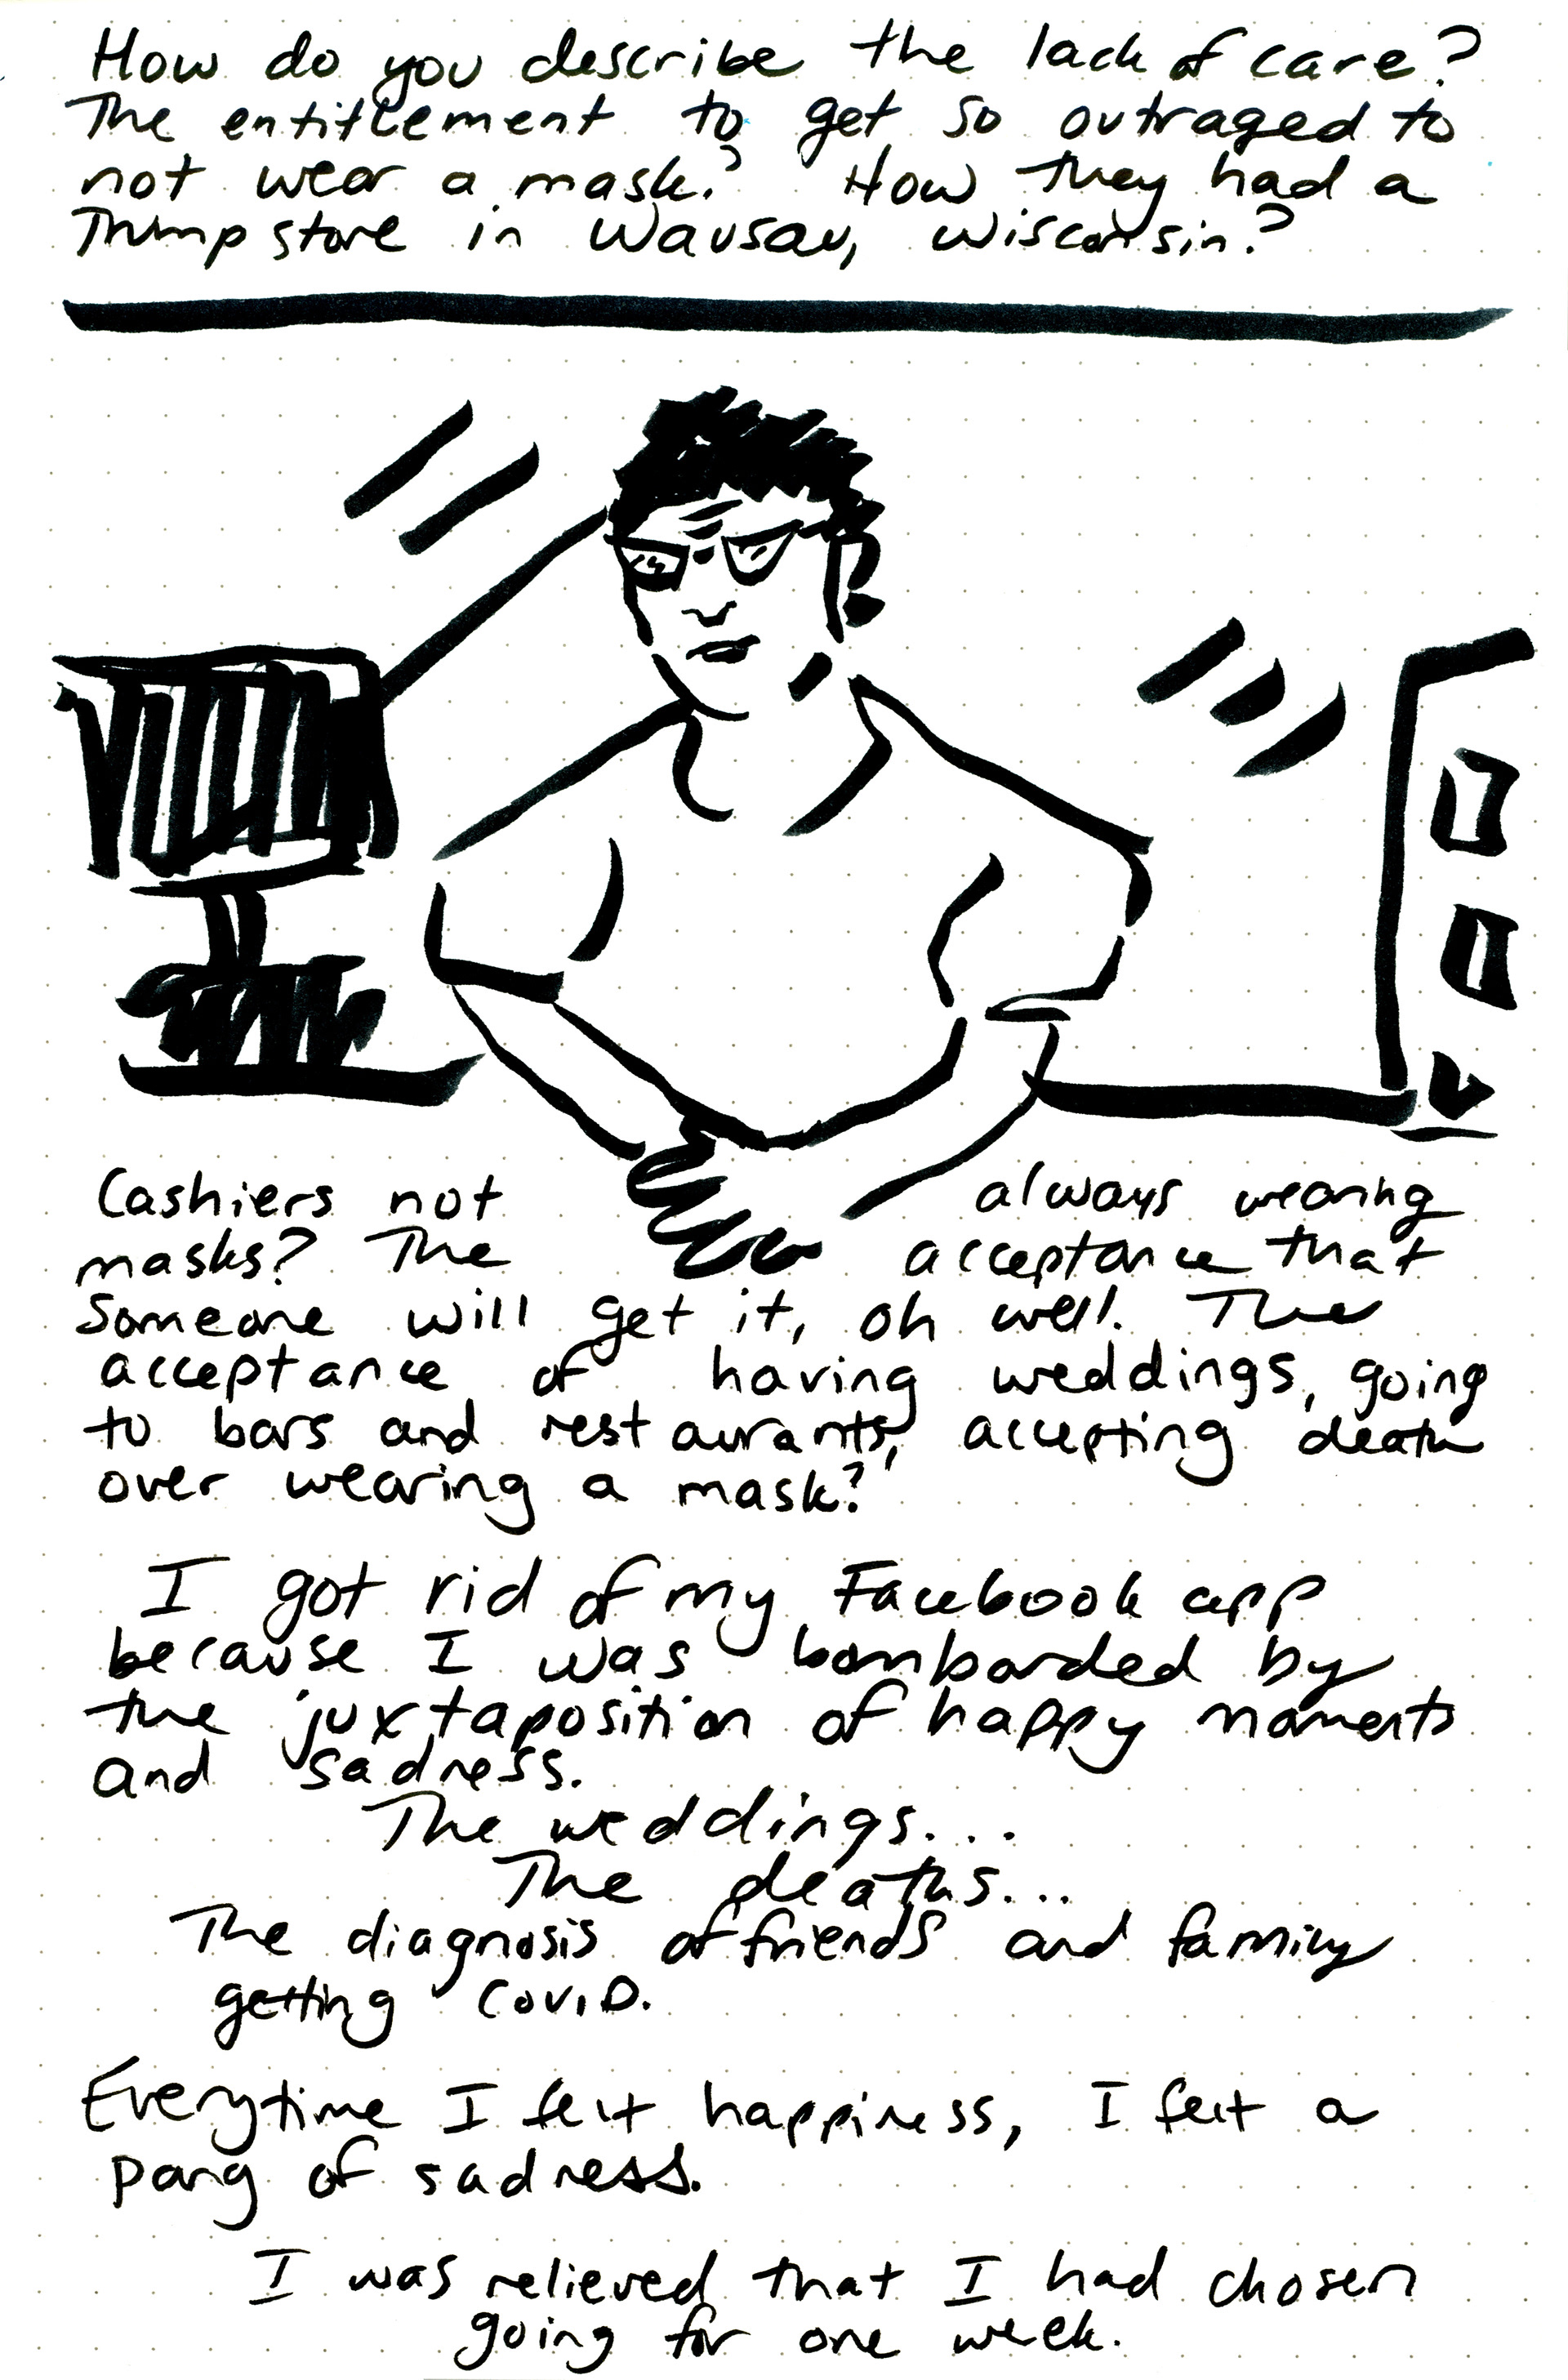 How do you describe the lack of care?
The entitlement to get so outraged to
not wear a mask? How they had a
Trump store in Wausau, Wisconsin?
Cashiers not always wearing
masks? The acceptance that
someone will get it, oh well. The
acceptance of having weddings, going
to bars and restaurants, accepting death
over wearing a mask?
I got rid of my Facebook app
because I was bombarded by
the juxtaposition of happy moments
and sadness.
The weddings...
The deaths...
The diagnosis of friends and family
getting COVID.
Everytime I felt happiness, I felt a
pang of sadness.
I was relieved that I had chosen
going for one week.